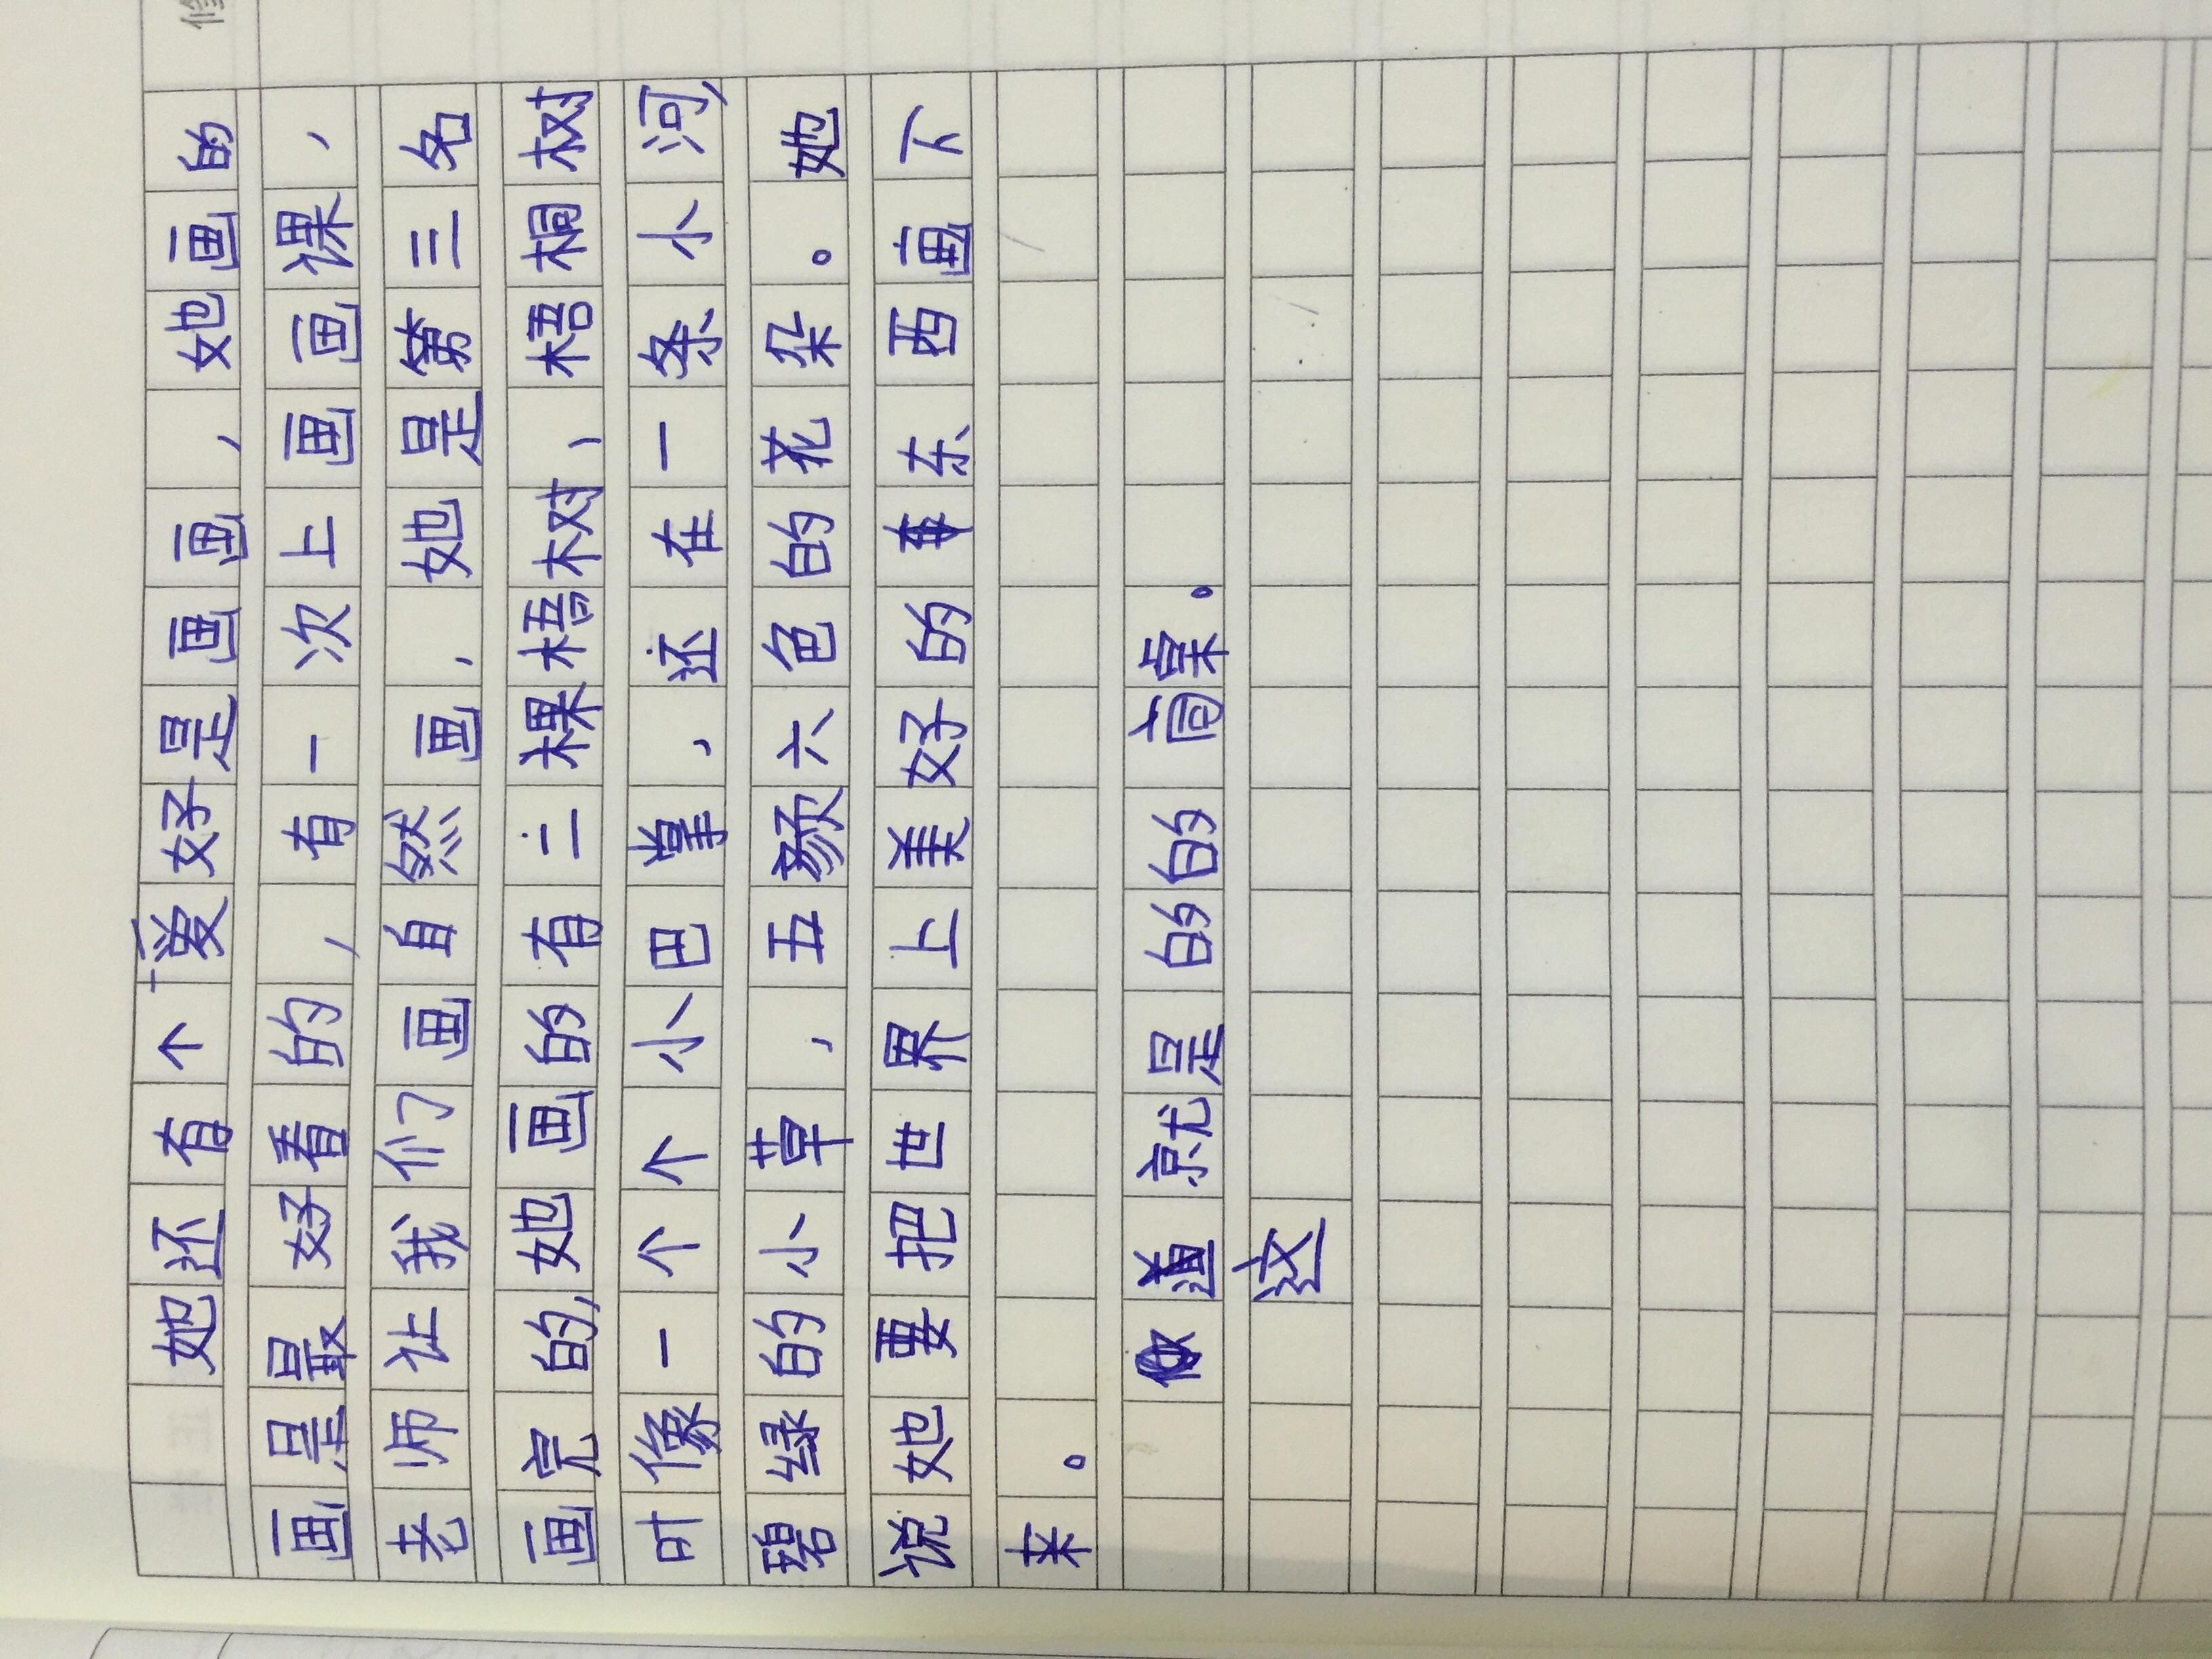 她还有个爱好是画画,她画的
画是最好看的,有一次上画画课,
老师让我们画自然画,她是第三名
画完的,她画的有二棵梧树、梧桐树
叶像一个个小巴掌,还在一条小河,
碧绿的小草,五颜六色的花朵。她
说她要把世界上美好的东西画下
来。
就是的的同桌。
这